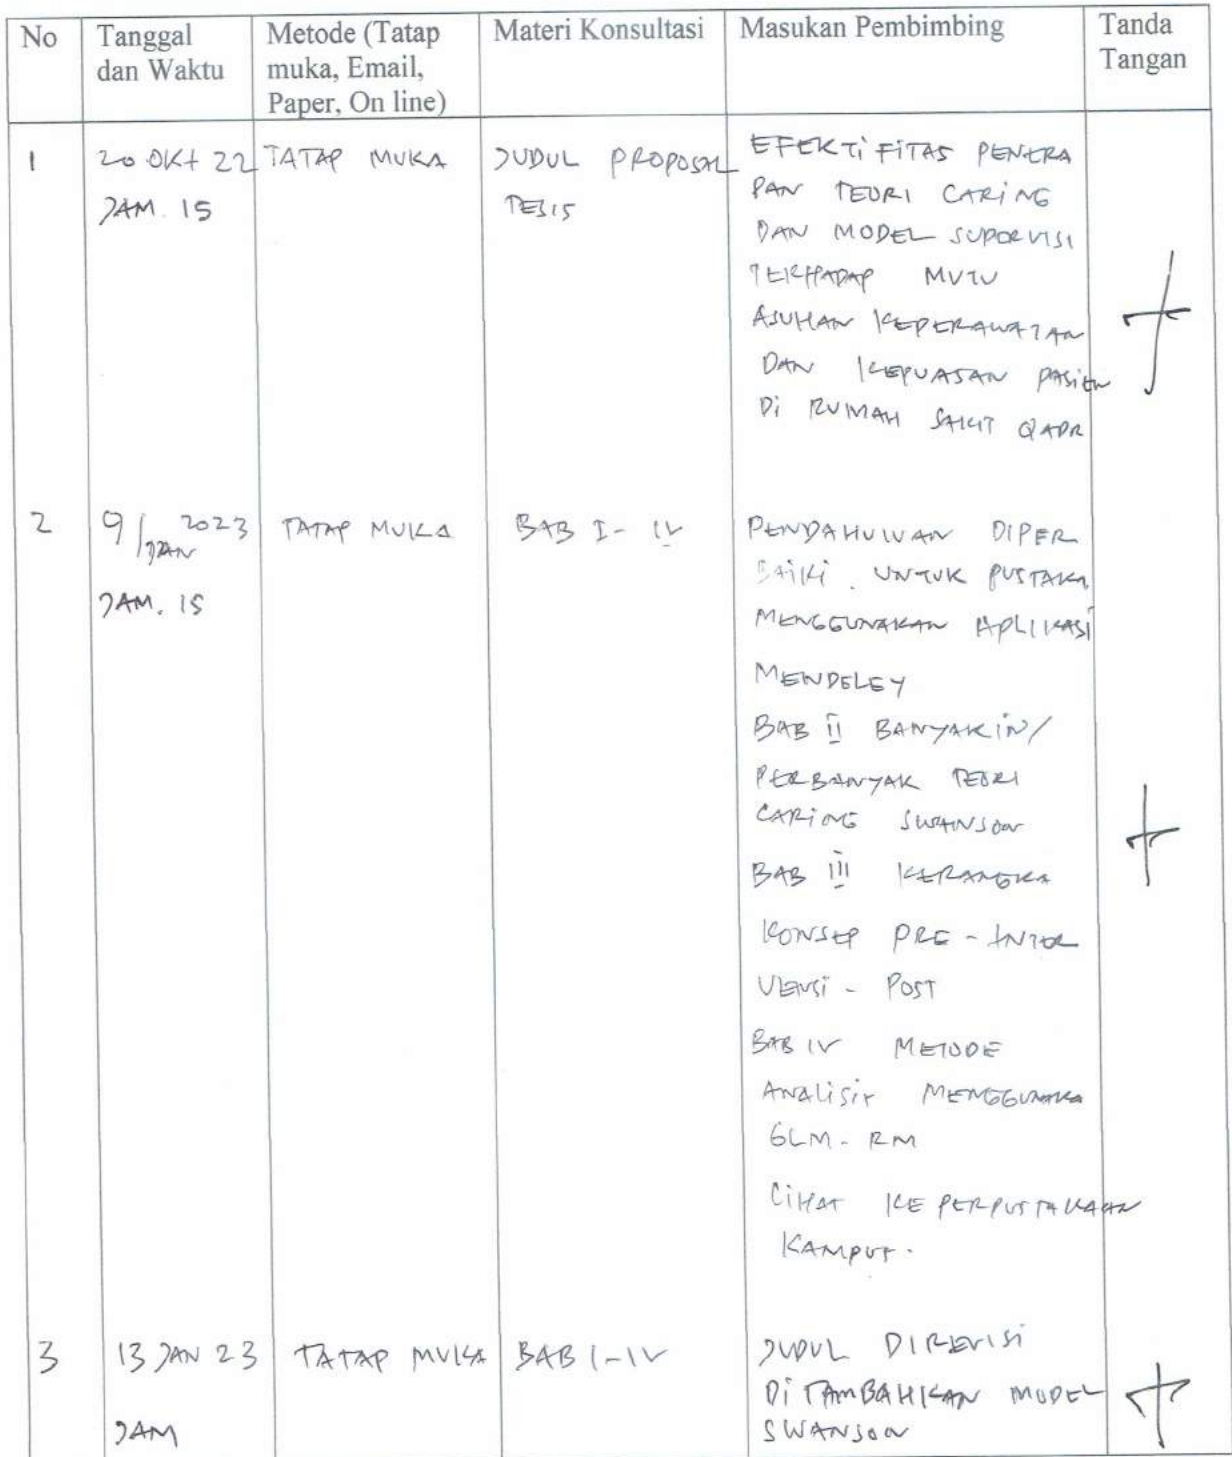 No
Tanggal
dan Waktu
Metode (Tatap
muka, Email,
Paper, On line)
Materi Konsultasi
Masukan Pembimbing
Tanda
Tangan
1
20 OKT 22
JAM. 15
TATAP MUKA
JUDUL PROPOSAL
TESIS
EFEKTIFITAS PENERA
PAN TEORI CARING
DAN MODEL SUPORVISI
TERHADAP MUTU
ASUHAN KEPERAWATAN
DAN KEPUASAN PASIEN
Di RUMAH SAKIT QADR
2
9/JAN 2023
JAM. 15
TATAP MUKA
BAB I - IV
PENDAHULUAN DIPER
BAIKI. UNTUK PUSTAKA
MENGGUNAKAN APLIKASI
MENDELEY
BAB II BANYAKIN/
PERBANYAK TEORI
CARING SWANSON
BAB III KERANGKA
KONSEP PRE - INTER
VENSI - POST
BAB IV METODE
ANALISIS MENGGUNAKA
GLM - RM
LIHAT KE PERPUSTAKAAN
KAMPUS.
3
13 JAN 23
JAM
TATAP MUKA
BAB I-IV
JUDUL DIREVISI
DITAMBAHKAN MODEL
SWANSON